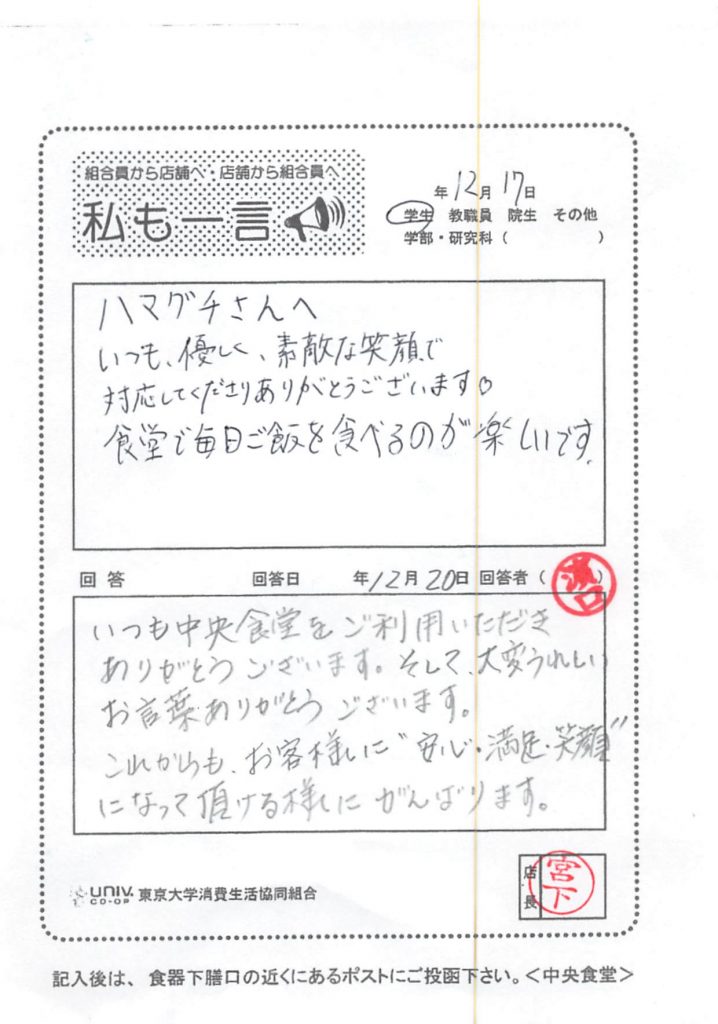 組合員から店舗へ・店舗から組合員へ
私も一言
年12月17日
学生 教職員 院生 その他
学部・研究科（ ）
ハマグチさんへ
いつも、優しく、素敵な笑顔で
対応してくださりありがとうございます♡
食堂で毎日ご飯を食べるのが楽しいです。
回答 回答日 年12月20日 回答者（濱口）
いつも中央食堂をご利用いただき
ありがとうございます。そして、大変うれしい
お言葉ありがとうございます。
これからも、お客様に“安心・満足・笑顔”
になって頂ける様に がんばります。
店長 宮下
UNIV. CO-OP 東京大学消費生活協同組合
記入後は、食器下膳口の近くにあるポストにご投函下さい。＜中央食堂＞